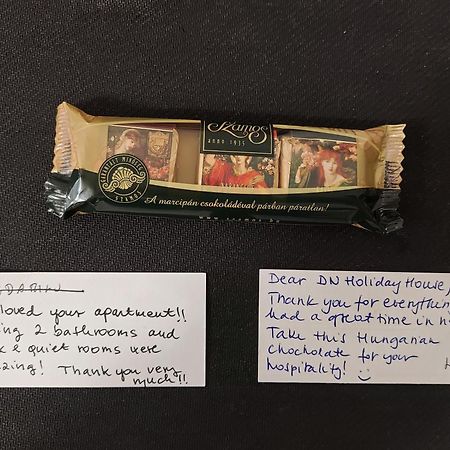 Szamos
anno 1935
GARANTÁLT MINŐSÉG
SZAMOS
A marcipán csokoládéval párban páratlan!
loved your apartment!!
ing 2 bathrooms and
& quiet rooms were
zing! Thank you very
much!!
Dear DN Holiday House,
Thank you for everything
had a great time in
Take this Hungarian
chocholate for your
hospitality! :)